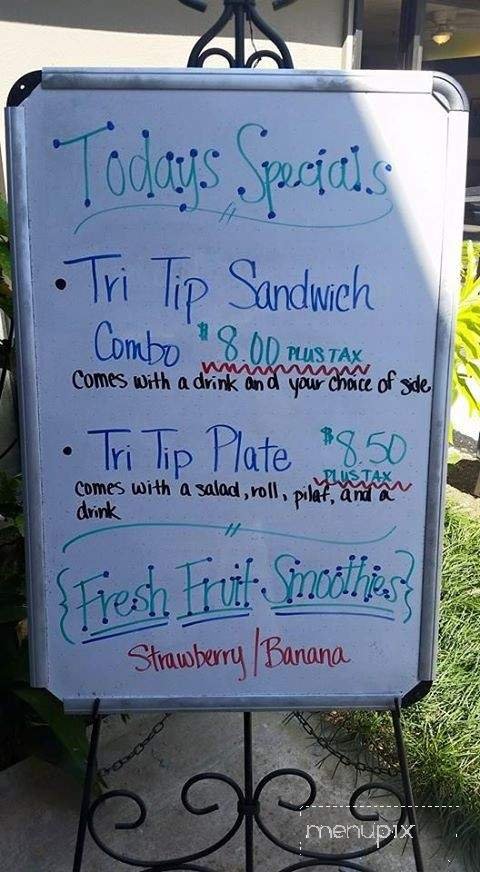 Todays Specials
• Tri Tip Sandwich
Combo $8.00 PLUS TAX
Comes with a drink and your choice of side
• Tri Tip Plate $8.50
PLUS TAX
comes with a salad, roll, pilaf, and a
drink
{Fresh Fruit Smoothies}
Strawberry/Banana
menupix